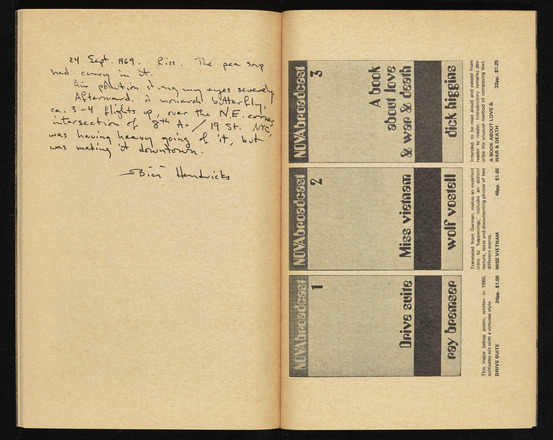 24 Sept. 1969. Riss. The pea soup
had curry in it.
Air pollution stung my eyes severely
Afterward. A monarch butterfly,
ca. 3-4 flights up, over the N.E. corner
intersection of 8th Av / 19 St. NYC
was having heavy going of it, but
was making it downtown.
Bici Hendricks
NOVAbroadcast
3
A book
about love
& war & death
dick higgins
Intended to be read aloud and passed from
reader to reader. Introductory remarks de-
scribe the unusual method of composing text.
A BOOK ABOUT LOVE &
WAR & DEATH
$1.25
NOVAbroadcast
2
Miss vietnam
wolf vostell
Translated from German, makes an excellent
intro to "happenings," includes an action/
lecture, texts and documenting photos of two
different events.
MISS VIETNAM
48pp. $1.65
NOVAbroadcast
1
Drive suite
ray bremser
This major bebop poem, written in 1960,
DRIVE SUITE
24pp. $1.00